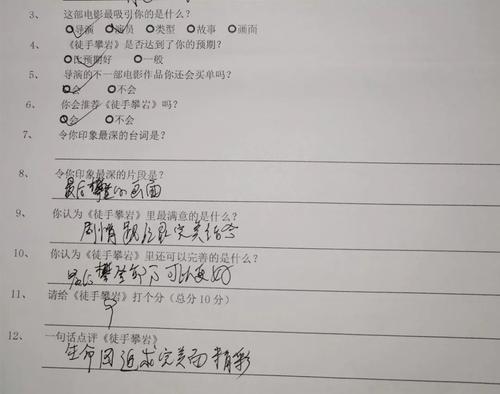 3、 这部电影最吸引你的是什么?
导演 演员 类型 故事 画面
4、 《徒手攀岩》是否达到了你的预期?
比预期好 一般
5、 导演的不一部电影作品你还会买单吗?
会 不会
6、 你会推荐《徒手攀岩》吗?
会 不会
7、 令你印象最深的台词是?
8、 令你印象最深的片段是?
最后攀登的画面
9、 你认为《徒手攀岩》里最满意的是什么?
剧情 完美结合
10、 你认为《徒手攀岩》里还可以完善的是什么?
最后攀登部分可以更好
11、 请给《徒手攀岩》打个分(总分10分)
9
12、 一句话点评《徒手攀岩》
生命因追求完美而精彩